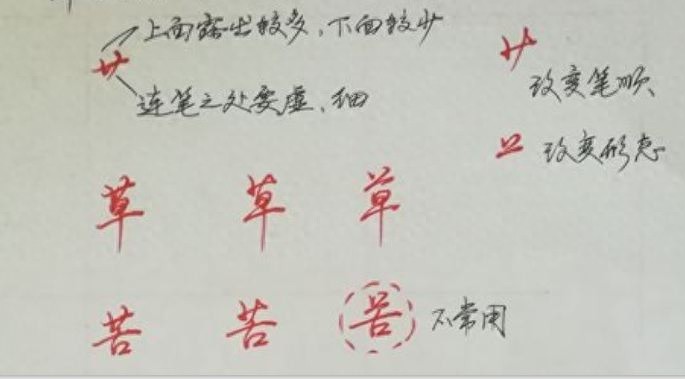 上面露出较多,下面较少
艹
连笔之处要虚、细
艹
改变笔顺
改变形态
草 草 草
苦 苦 苦 不常用